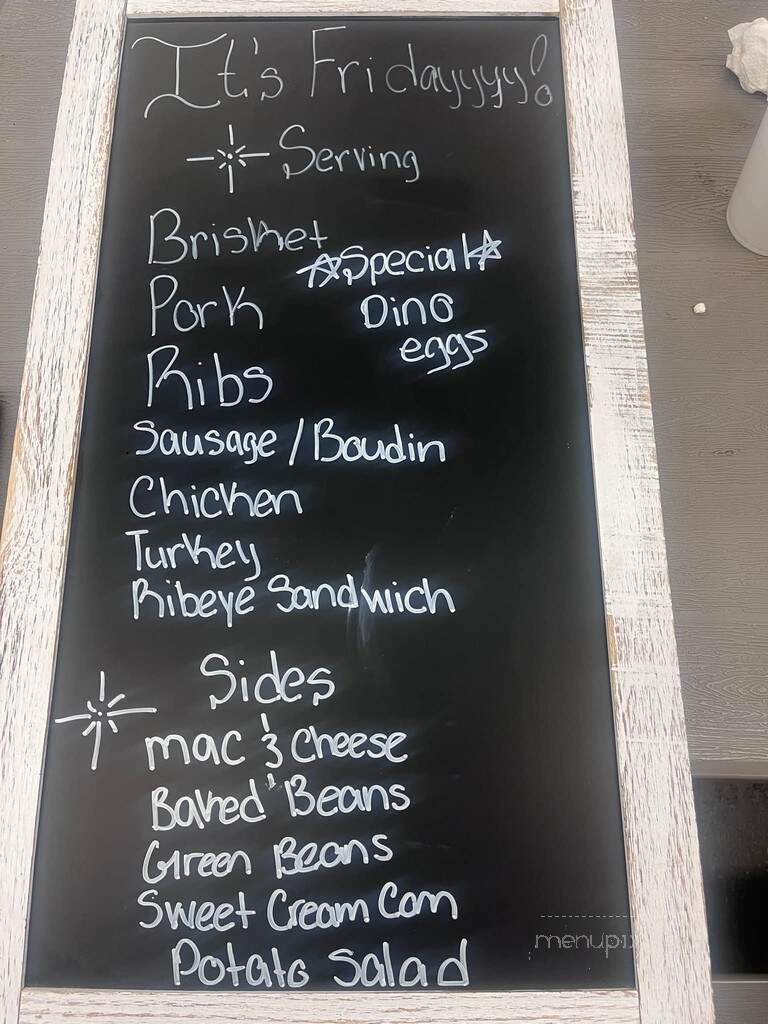 It's Fridayyyy!
Serving
Brisket
☆Special☆
Pork
Dino
eggs
Ribs
Sausage / Boudin
Chicken
Turkey
Ribeye Sandwich
Sides
mac & Cheese
Baked Beans
Green Beans
Sweet Cream Corn
Potato Salad
menupix